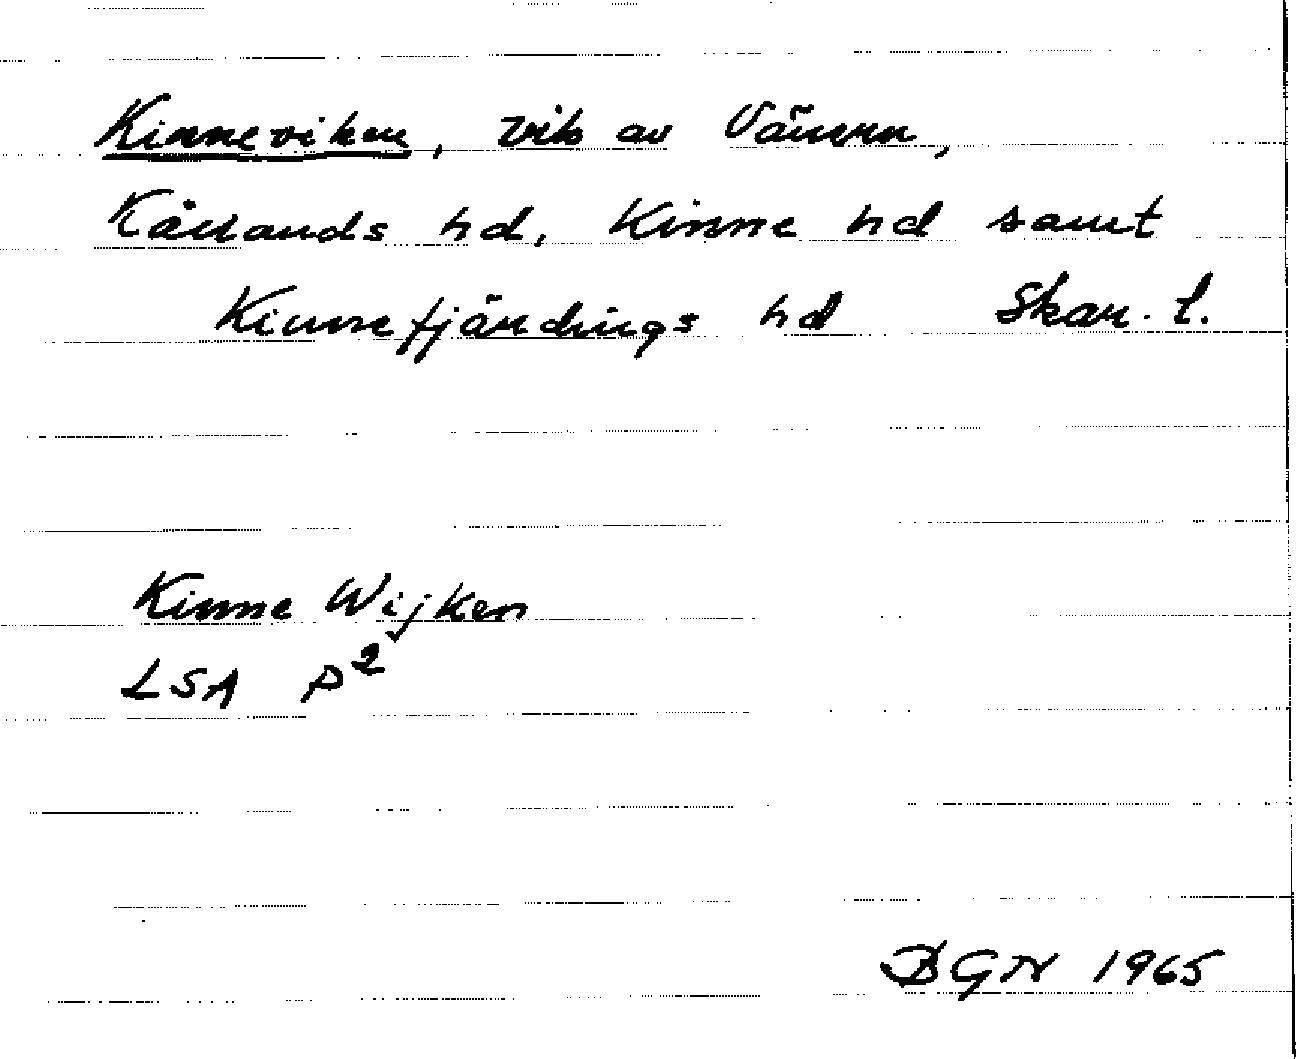 Kinneviken, vik av Vänern,
Kållands hd, Kinne hd samt
Kinnefjärdings hd Skar. l.
Kinne Wijken
LSA P²
BGN 1965